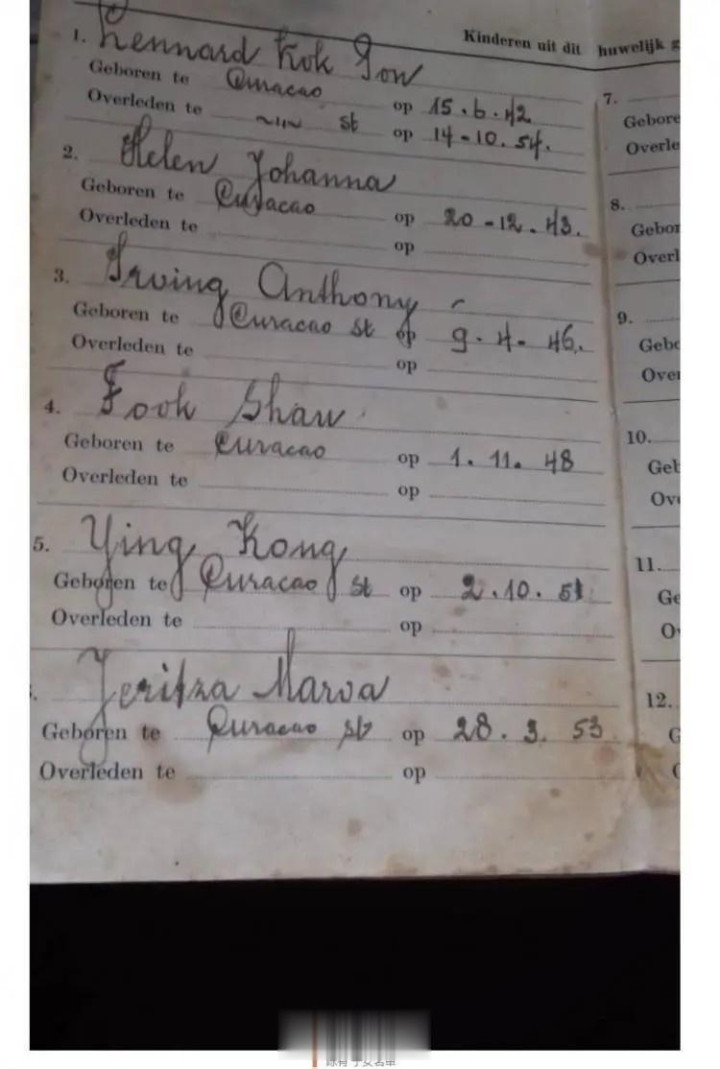 Kinderen uit dit huwelijk g
1. Lennard Kok Son
Geboren te Curacao op 15.6.42
Overleden te ~11~ st op 14-10.54.
2. Helen Johanna
Geboren te Curacao op 20-12.43.
Overleden te op
3. Irving Anthony
Geboren te Curacao st op 9.4-46.
Overleden te op
4. Fook Shaw
Geboren te Curacao op 1.11.48
Overleden te op
5. Ying Kong
Geboren te Curacao st op 2.10.51
Overleden te op
Jeritza Marva
Geboren te Curacao st op 28.3.53
Overleden te op
7.
Gebore
Overle
8.
Gebor
Overl
9.
Gebo
Over
10.
Geb
Ov
11.
Ge
O
12.
G